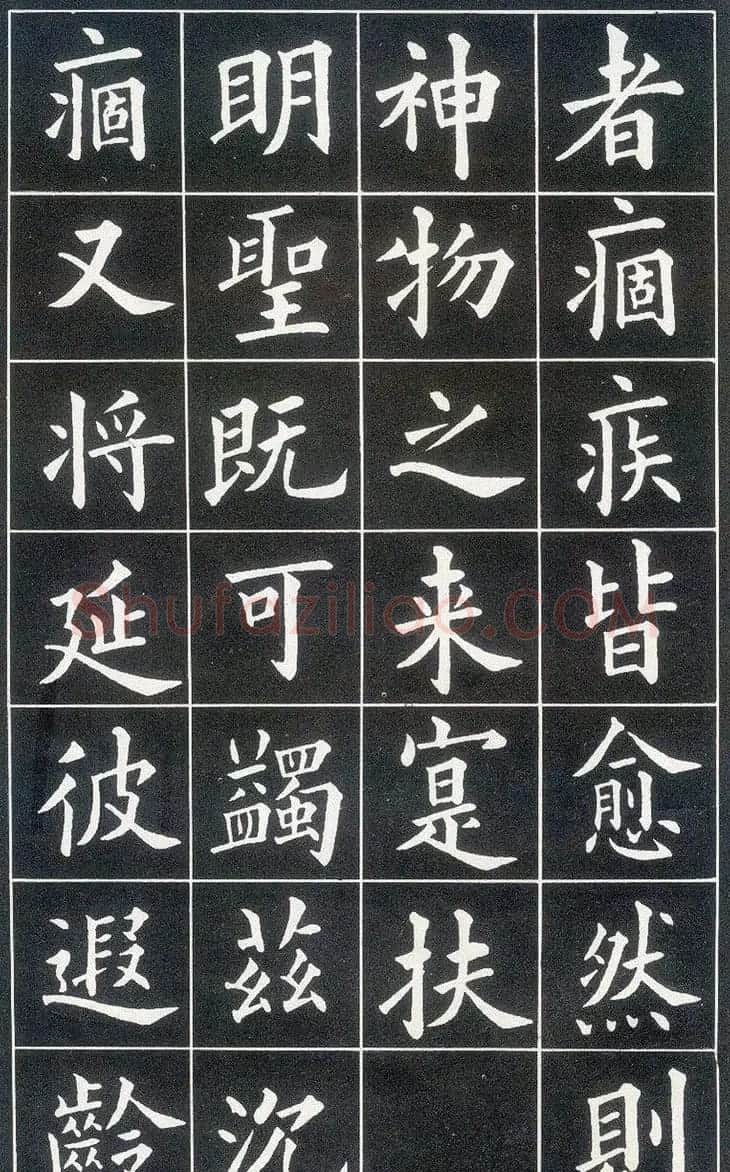 者痼疾皆愈然則
神物之来寔扶
明聖既可蠲茲沉
痼又将延彼遐齡
Shufaziliao.COM